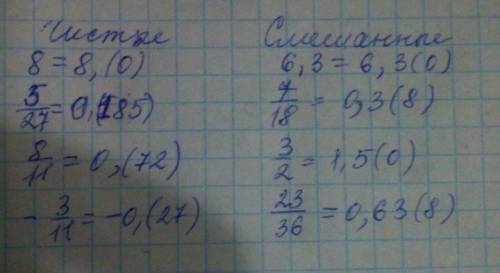 Чистые
8 = 8,(0)
5/27 = 0,(185)
8/11 = 0,(72)
- 3/11 = -0,(27)
Смешанные
6,3 = 6,3(0)
7/18 = 0,3(8)
3/2 = 1,5(0)
23/36 = 0,63(8)